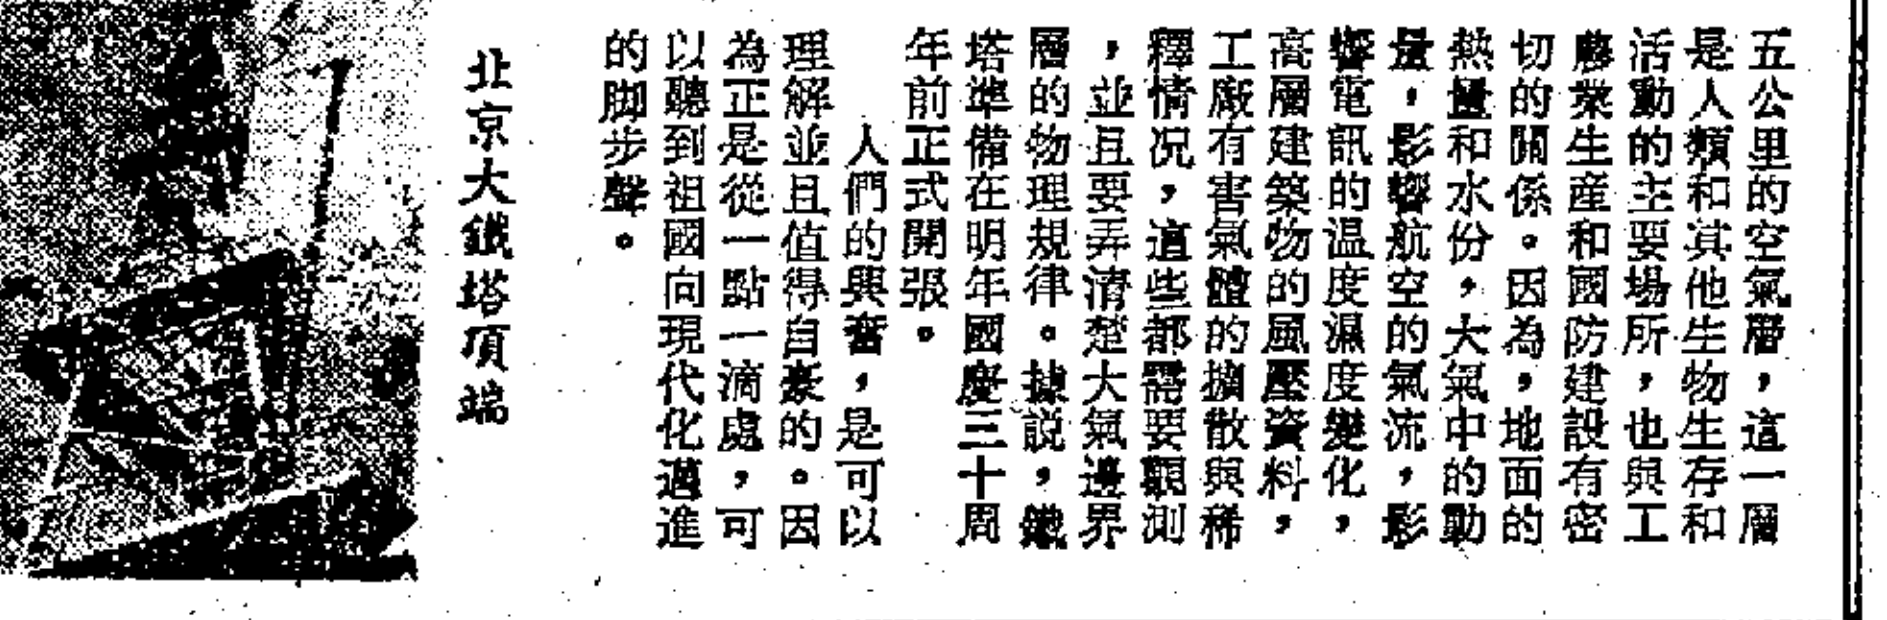 五公里的空氣層，這一層
是人類和其他生物生存和
活動的主要場所，也與工
農業生産和國防建設有密
切的關係。因為，地面的
熱量和水份，大氣中的動
量，影響航空的氣流，影
響電訊的温度濕度變化，
高層建築物的風壓資料，
工廠有害氣體的擴散與稀
釋情况，這些都需要觀測
，並且要弄清楚大氣邊界
層的物理規律。據説，鐵
塔準備在明年國慶三十周
年前正式開張。
人們的興奮，是可以
理解並且值得自豪的。因
為正是從一點一滴處，可
以聽到祖國向現代化邁進
的脚步聲。
北京大鐵塔頂端